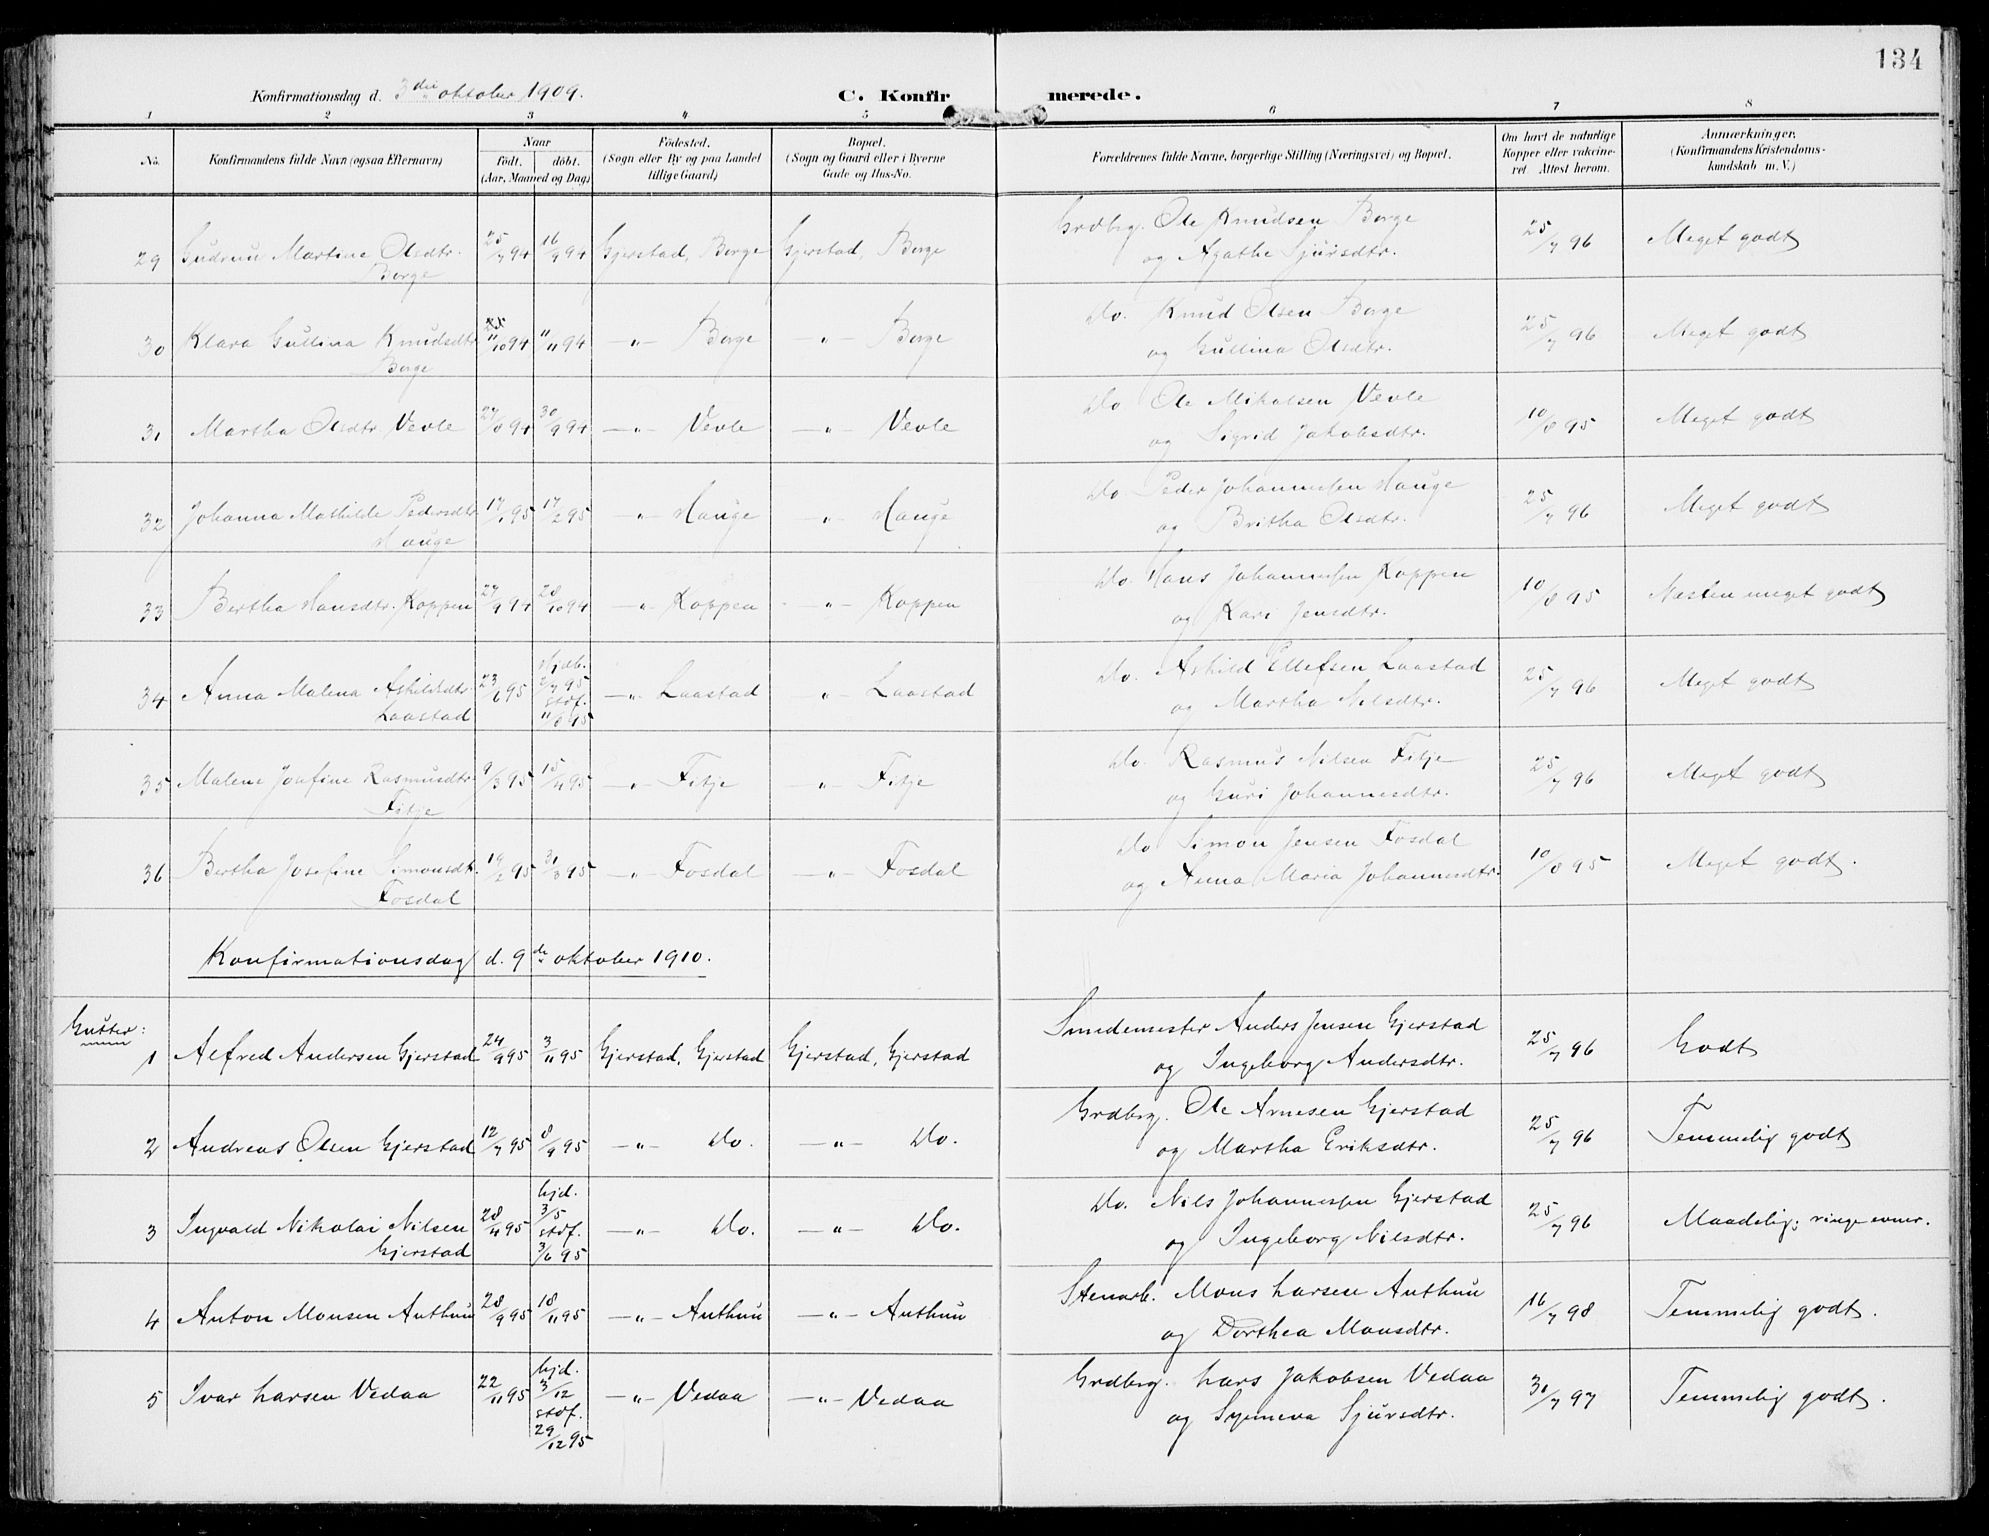 134
Konfirmationsdag d. 3die oktober 1909. C. Konfirmerede.
1 2 3 4 5 6 7 8
No. Konfirmandens fulde Navn (ogsaa Efternavn) Naar födt. döbt. (Aar, Maaned og Dag) Födested. (Sogn eller By og paa Landet tillige Gaard) Bopæl. (Sogn og Gaard eller i Byerne Gade og Hus-No. Forældrenes fulde Navne, borgerlige Stilling (Næringsvei) og Bopæl. Om havt de naturlige Kopper eller vakcineret. Attest herom. Anmærkninger. (Konfirmandens Kristendomskundskab m. V.)
29 Gudrun Martine Olsdtr. Borge 25/7 94 16/9 94 Gjerstad, Borge Gjerstad, Borge Grdbrg. Ole Knudsen Borge og Agathe Sjursdtr. 25/7 96 Meget godt
30 Klara Gullina Knudsdtr Borge 11/10 94 11/11 94 -"- Borge -"- Borge Do. Knud Olsen Borge og Gullina Olsdtr. 25/7 96 Meget godt
31 Martha Olsdtr. Vevle 27/8 94 30/9 94 -"- Vevle -"- Vevle Do. Ole Mikalsen Vevle og Sigrid Jakobsdtr. 10/8 95 Meget godt
32 Johanna Mathilde Pedersdtr Hauge 17/1 95 17/2 95 -"- Hauge -"- Hauge Do. Peder Johannessen Hauge og Britha Olsdtr. 25/7 96 Meget godt
33 Bertha Hansdtr. Koppen 27/9 94 28/10 94 -"- Koppen -"- Koppen Do. Hans Johannessen Koppen og Kari Jensdtr. 10/8 95 Næsten meget godt
34 Anna Malena Askildsdtr Laastad 23/6 95 Hjdb. 2/7 95 stdf. 11/8 95 -"- Laastad -"- Laastad Do. Askild Ellefsen Laastad og Martha Nilsdtr. 25/7 96 Meget godt
35 Malene Josefine Rasmusdtr. Fitje 9/3 95 15/4 95 -"- Fitje -"- Fitje Do. Rasmus Nilsen Fitje og Guri Johannesdtr. 25/7 96 Meget godt
36 Bertha Josefine Simonsdt. Fosdal 19/2 95 31/3 95 -"- Fosdal -"- Fosdal Do Simon Jensen Fosdal og Anna Maria Johannesdtr. 10/8 95 Meget godt.
Konfirmationsdag d. 9de oktober 1910.
Gutter:
1 Alfred Andersen Gjerstad 24/9 95 3/11 95 Gjerstad, Gjerstad Gjerstad, Gjerstad Smedemester Anders Jensen Gjerstad og Ingeborg Andersdtr. 25/7 96 Godt
2 Andreas Olsen Gjerstad 12/7 95 8/9 95 -"- Do. -"- Do. Grdbrg. Ole Arnesen Gjerstad og Martha Eriksdtr. 25/7 96 Temmelig godt
3 Ingvald Nikolai Nilsen Gjerstad 28/4 95 hjd. 3/5 stdf. 3/6 95 -"- Do. -"- Do. Do. Nils Johannessen Gjerstad og Ingeborg Nilsdtr. 25/7 96 Maadelig; ringe evner.
4 Anton Monsen Authun 28/9 95 18/11 95 -"- Authun -"- Authun Stenarb. Mons Larsen Authun og Dorthea Monsdtr. 16/7 98 Temmelig godt.
5 Ivar Larsen Vedaa 22/11 95 hjd. 3/12 stdf. 29/12 95 -"- Vedaa -"- Vedaa Grdbrg. Lars Jakobsen Vedaa og Synneva Sjursdtr. 31/7 97 Temmelig godt.